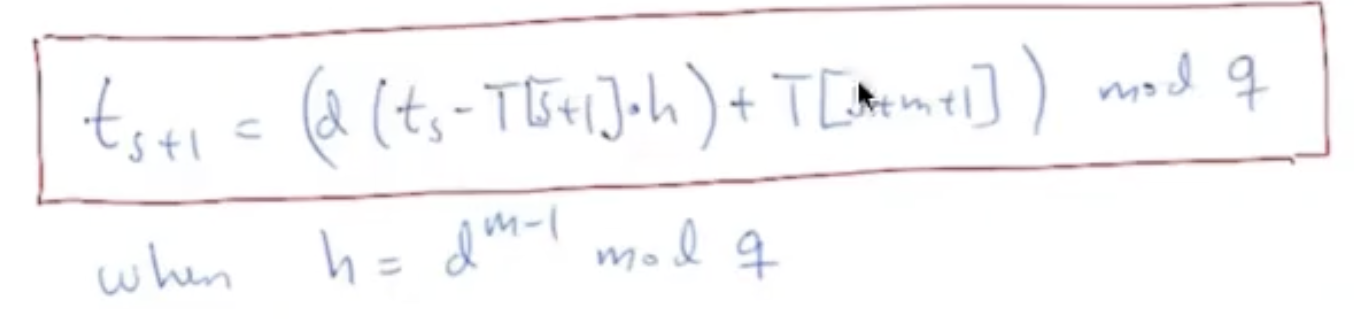 t_{s+1} = (d (t_s - T[s+1]·h) + T[s+m+1]) mod q
when h = d^{m-1} mod q